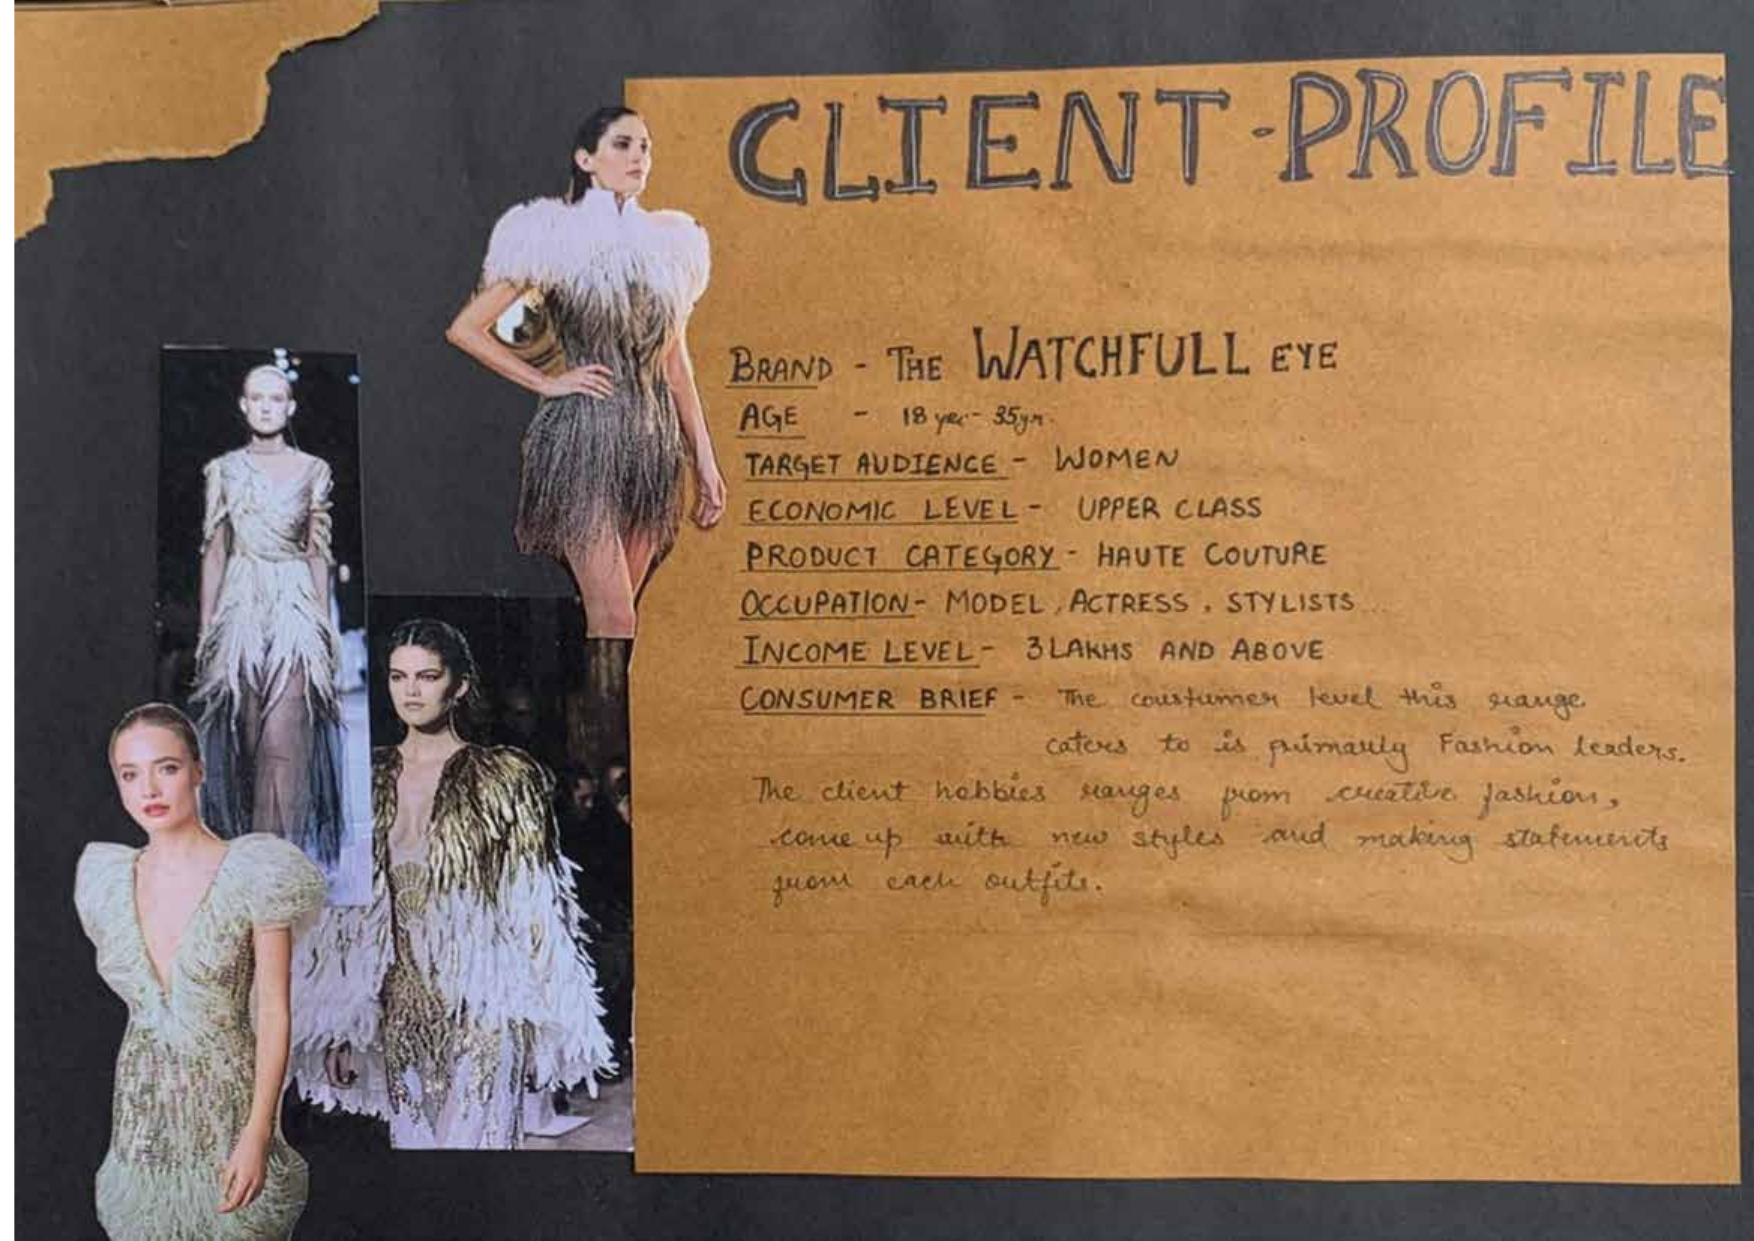 CLIENT-PROFILE
BRAND - THE WATCHFULL EYE
AGE - 18 yer - 35yr.
TARGET AUDIENCE - WOMEN
ECONOMIC LEVEL - UPPER CLASS
PRODUCT CATEGORY - HAUTE COUTURE
OCCUPATION - MODEL, ACTRESS, STYLISTS...
INCOME LEVEL - 3 LAKHS AND ABOVE
CONSUMER BRIEF - The coustumer level this range
caters to is primarily Fashion leaders.
The client hobbies ranges from creative fashion,
come up with new styles and making statements
from each outfits.